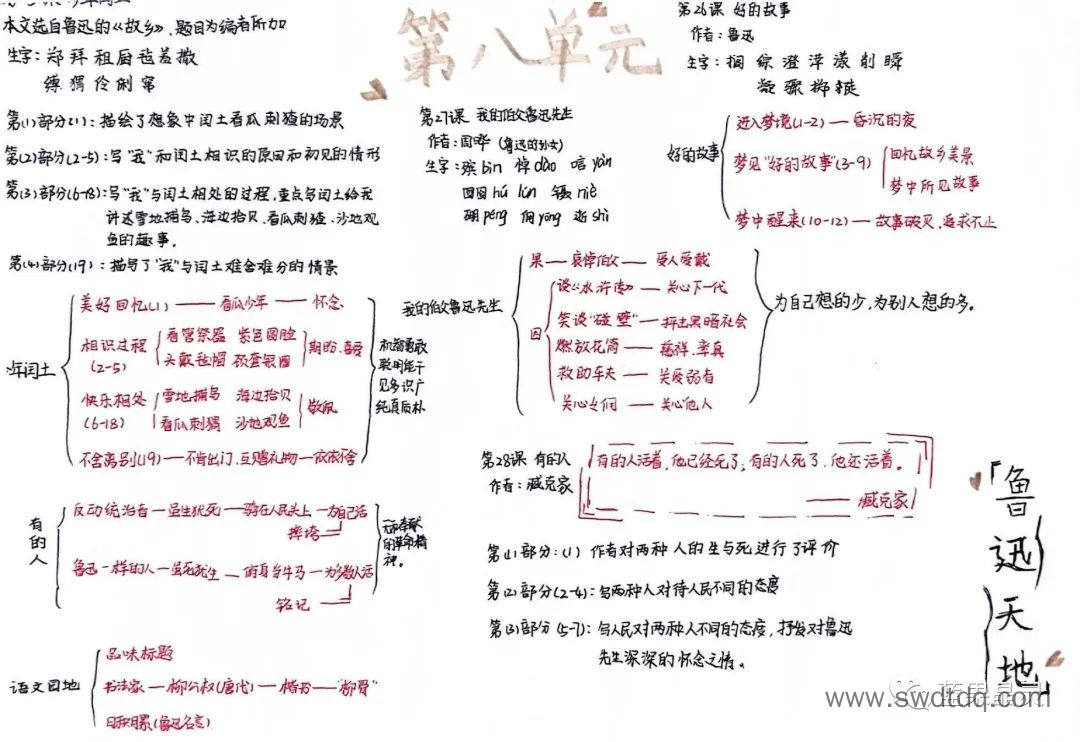 本文选自鲁迅的《故乡》,题目为编者所加
生字:郑 拜 租 厨 毡 羞 撒
缚 猬 伶 俐 窜
第(1)部分(1):描绘了想象中闰土看瓜刺猹的场景
第(2)部分(2-5):写“我”和闰土相识的原因和初见的情形
第(3)部分(6-18):写“我”与闰土相处的过程,重点写闰土给我
讲述雪地捕鸟、海边拾贝、看瓜刺猹、沙地观
鱼的趣事。
第(4)部分(19):描写了“我”与闰土难舍难分的情景
年闰土
美好回忆(1)——看瓜少年——怀念
相识过程
(2-5)
看管祭器 紫色圆脸
头戴毡帽 颈套银圈
期盼、喜爱
快乐相处
(6-18)
雪地捕鸟 海边拾贝
看瓜刺猹 沙地观鱼
敬佩
不舍离别(19)—不肯出门、互赠礼物—依依不舍
机智勇敢
聪明能干
见多识广
纯真质朴
有的人
反动统治者—虽生犹死—骑在人民头上—为自己活
摔垮
鲁迅一样的人—虽死犹生—俯身当牛马—为多数人活
铭记
无私奉献
的革命精
神。
语文园地
品味标题
书法家—柳公权(唐代)—楷书—“柳骨”
日积月累(鲁迅名言)
第八单元
第27课 我的伯父鲁迅先生
作者:周晔(鲁迅的侄女)
生字:殡bìn 悼dào 唁yàn
囫囵hú lún 镊niè
硼péng 佣yōng 逝shì
我的伯父鲁迅先生
果—哀悼伯父—受人爱戴
因
谈《水浒传》—关心下一代
笑谈“碰壁”—抨击黑暗社会
燃放花筒—慈祥、率真
救助车夫—关爱弱者
关心女佣—关心他人
为自己想的少,为别人想的多。
第26课 好的故事
作者:鲁迅
生字:搁 综 澄 萍 漾 削 瞬
凝 骤
好的故事
进入梦境(1-2)—昏沉的夜
梦见“好的故事”(3-9)
回忆故乡美景
梦中所见故事
梦中醒来(10-12)—故事破灭,追求不止
第28课 有的人
作者:臧克家
有的人活着,他已经死了;有的人死了,他还活着。
——臧克家
第(1)部分:(1)作者对两种人的生与死进行了评价
第(2)部分(2-4):写两种人对待人民不同的态度
第(3)部分(5-7):写人民对两种人不同的态度,抒发对鲁迅
先生深深的怀念之情。
「鲁迅天地」
www.swdtdq.com